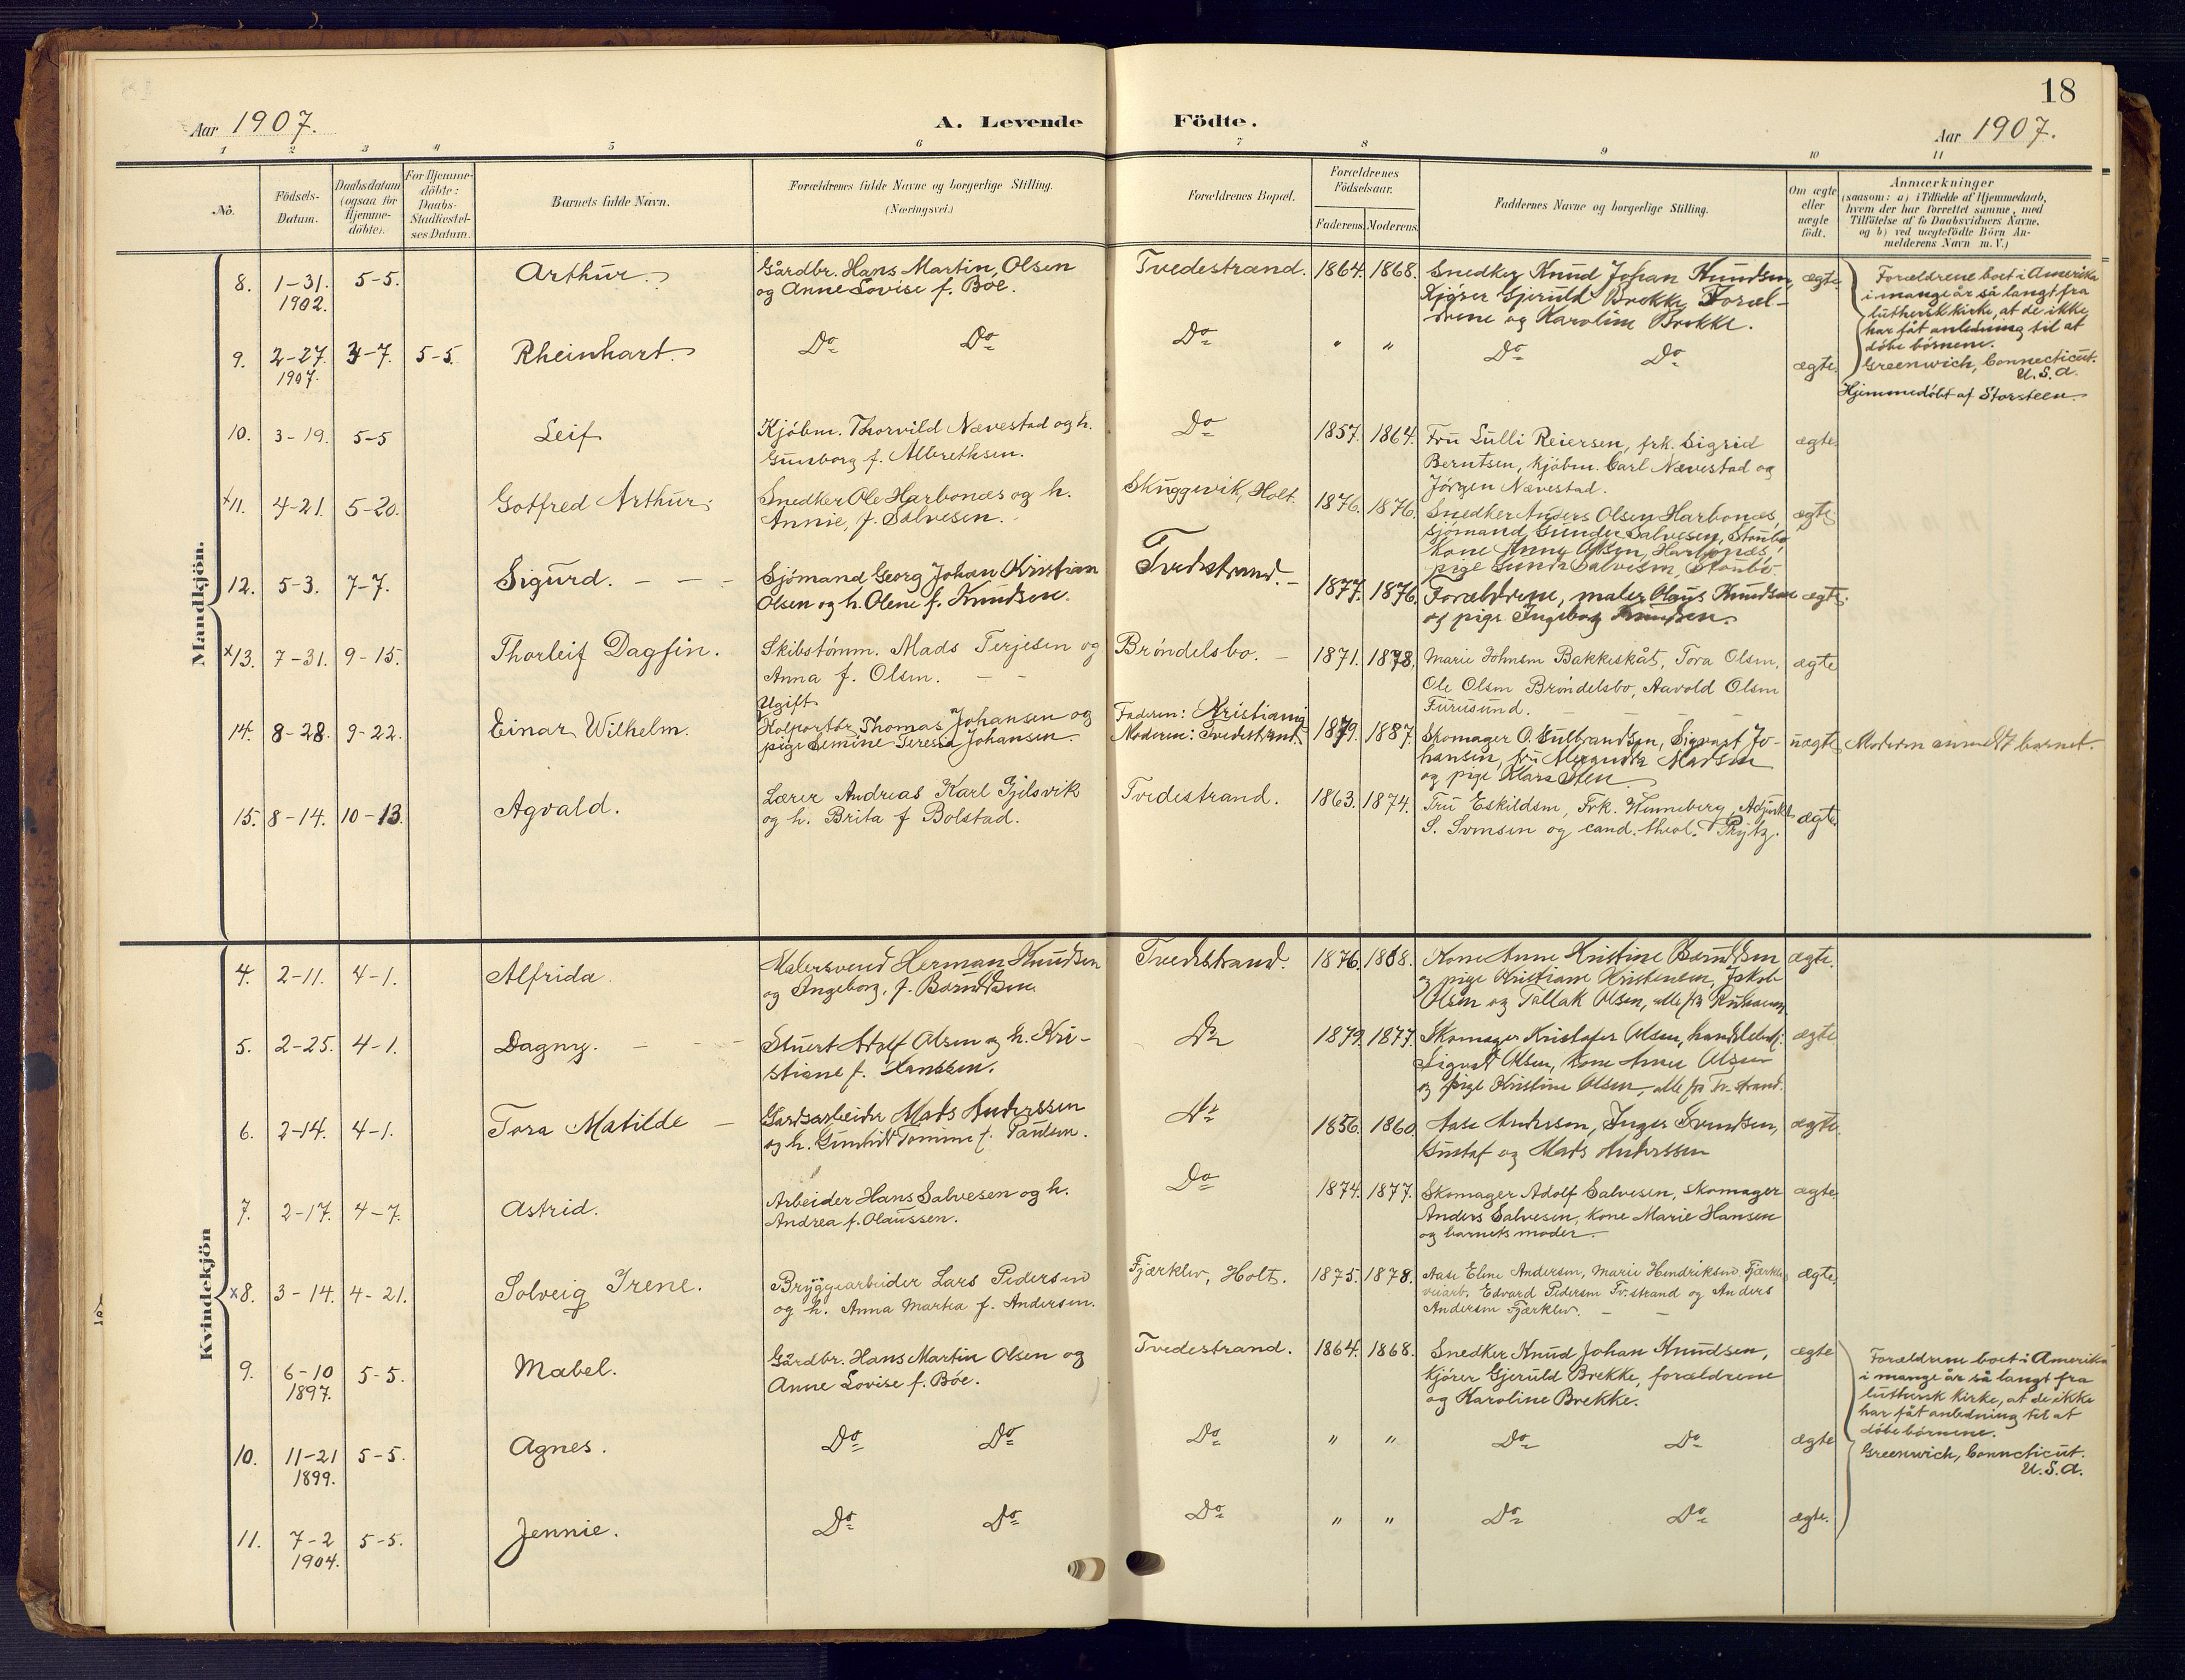 18
Aar 1907.
A. Levende Födte.
Aar 1907.
1 2 3 4 5 6 7 8 9 10 11
No.
Födsels-
Datum.
Daabsdatum
(ogsaa for
Hjemme-
döbte).
For Hjemme-
döbte:
Daabs-
Stadfæstel-
ses Datum.
Barnets fulde Navn.
Forældrenes fulde Navne og borgerlige Stilling.
(Næringsvei.)
Forældrenes Bopæl.
Forældrenes
Födselsaar.
Faderens. Moderens.
Faddernes Navne og borgerlige Stilling.
Om ægte
eller
uægte
födt.
Anmærkninger
(saasom: a) i Tilfælde af Hjemmedaab,
hvem der har forrettet samme, med
Tilföielse af to Daabsvidners Navne,
og b) ved uægtefödte Börn An-
melderens Navn m. V.)
Mandkjön.
8. 1-31. 1902. 5-5. Arthur.
Gårdbr. Hans Martin Olsen
og Anne Lovise f. Böe.
Tvedestrand. 1864. 1868.
Snedker Knud Johan Knudsen,
Kjører Gjeruld Brekke, Foræl-
drene og Karoline Brekke.
ægte.
Forældrene boet i Amerika
i mange år så langt fra
luthersk kirke, at de ikke
har fåt anledning til at
döbe börnene.
Greenwich, Connecticut.
U. S. A.
9. 2-27. 1907. 3-7. 5-5. Rheinhart.
Do Do Do " " Do Do ægte.
Hjemmedöbt af Storsteen.
10. 3-19. 5-5 Leif
Kjöbm. Thorvild Nævestad og h.
Gunborg f. Albrethsen.
Do 1857. 1864.
Fru Lulli Reiersen, frk. Sigrid
Berntsen, kjöbm. Carl Nævestad og
Jörgen Nævestad.
ægte.
x11. 4-21. 5-20. Gotfred Arthur.
Snedker Ole Harbonæs og h.
Annie, f. Salvesen.
Skuggevik, Holt. 1876. 1876.
Snedker Anders Olsen Harbonæs,
sjömand Gunder Salvesen, Stoubö
kone Anne Olsen, Harbonæs,
pige Gunda Salvesen, Stoubö
ægte.
12. 5-3. 7-7. Sigurd.
Sjömand Georg Johan Kristian
Olsen og h. Olene f. Knudsen.
Tvedestrand. 1877. 1876.
Forældrene, maler Olaus Knudsen
og pige Ingeborg Knudsen.
ægte.
x13. 7-31. 9-15. Thorleif Dagfin.
Skibstömm. Mads Terjesen og
Anna f. Olsen.
Bröndelsbo. 1871. 1878.
Marie Johnsen Bakkeskåt, Tora Olsen,
Ole Olsen Bröndelsbo, Aavold Olsen
Furusund.
ægte
14. 8-28. 9-22. Einar Wilhelm.
Ugift
Kolportör Thomas Johansen og
pige Semine Teresia Johansen.
Faderen: Kristiania
Moderen: Tvedestrand. 1879. 1887.
Skomager O. Gulbrandsen, Sigvart Jo-
hansen, fru Alexandra Madsen
og pige Klara Sten
uægte
Moderen anmeldt barnet.
15. 8-14. 10-13. Agvald.
Lærer Andreas Karl Gjelsvik
og h. Brita f Bolstad.
Tvedestrand. 1863. 1874.
Fru Eskildsen, Frk. Henneberg, Adjunkt
S. Svensen og cand. theol. Prytz.
ægte.
Kvindekjön
4. 2-11. 4-1. Alfrida.
Malersvend Herman Knudsen
og Ingeborg, f. Berndtsen.
Tvedestrand. 1876. 1888.
Kone Anne Kristine Berndtsen
og pige Kristiane Kristensen, Jakob
Olsen og Tallak Olsen, alle fra
ægte.
5. 2-25. 4-1. Dagny.
Stuert Adolf Olsen og h. Kri-
stiane f. Hanssen.
Do 1879. 1877.
Skomager Kristofer Olsen,
Sigvald Olsen, kone Anne Olsen
og pige Kristine Olsen, alle fra Tv. strand.
ægte.
6. 2-14. 4-1. Tora Matilde
Gårdsarbeider Mads Anderssen
og h. Gunhild Tomine f. Paulsen.
Do 1856. 1860.
Aase Andersen, Inger Svendsen,
Gustaf og Mads Anderssen
ægte.
7. 2-17. 4-7. Astrid.
Arbeider Hans Salvesen og h.
Andrea f. Olaussen.
Do 1874. 1877.
Skomager Adolf Salvesen, skomager
Anders Salvesen, kone Marie Hansen
og barnets moder.
ægte.
x8. 3-14. 4-21. Solveig Irene.
Bryggearbeider Lars Pedersen
og h. Anna Martea f. Andersen.
Fjærklev, Holt. 1875. 1878.
Aase Eline Andersen, Marie Hendriksen Fjærklev
veiarb. Edvard Pedersen Tv. strand og Anders
Andersen Fjærklev.
ægte.
9. 6-10 1897. 5-5. Mabel.
Gårdbr. Hans Martin Olsen og
Anne Lovise f. Böe.
Tvedestrand. 1864. 1868.
Snedker Knud Johan Knudsen,
kjører Gjeruld Brekke, forældrene
og Karoline Brekke.
ægte
Forældrene boet i Amerika
i mange år så langt fra
luthersk kirke, at de ikke
har fåt anledning til at
döbe börnene.
Greenwich, Conncticut.
U. S. A.
10. 11-21 1899. 5-5. Agnes.
Do Do Do " " Do Do ægte
11. 7-2 1904. 5-5. Jennie.
Do Do Do " " Do Do ægte.